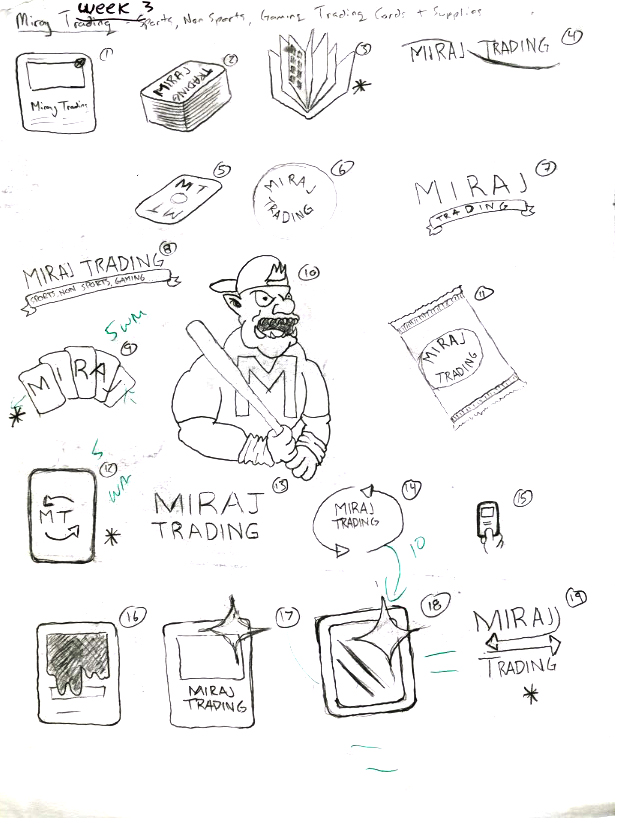 WEEK 3
Miraj Trading - Sports, Non Sports, Gaming Trading Cards + Supplies
1
Miraj Trading
2
MIRAJ
TRADING
3
4
MIRAJ TRADING
5
MT
MT
6
MIRAJ
TRADING
7
MIRAJ
TRADING
8
MIRAJ TRADING
SPORTS, NON SPORTS, GAMING
9
MIRAJ
10
M
M
11
MIRAJ
TRADING
12
MT
13
MIRAJ
TRADING
14
MIRAJ
TRADING
10
15
16
17
MIRAJ
TRADING
18
19
MIRAJ
TRADING